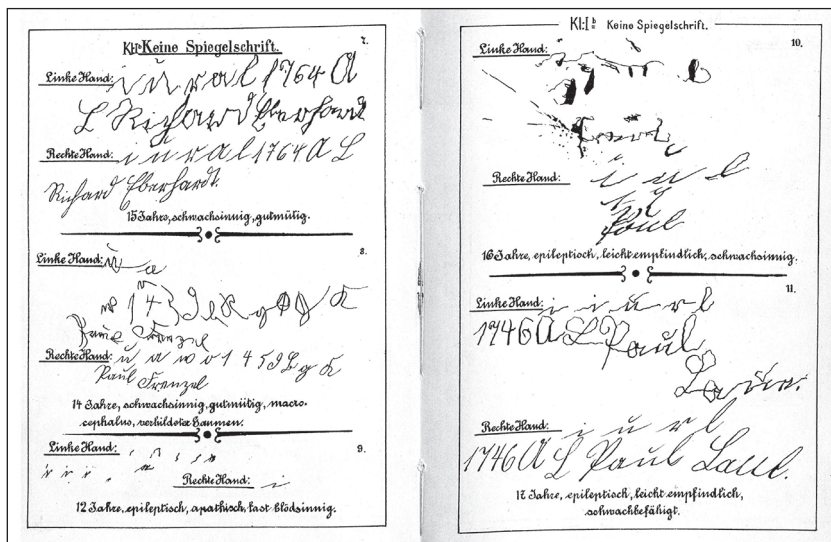 Kl:I a Keine Spiegelschrift.
7.
Linke Hand: i u r a l 1764 A
L Richard Eberhardt
Rechte Hand: i u r a l 1764 A L
Richard Eberhardt.
15 Jahre, schwachsinnig, gutmütig.
8.
Linke Hand: u a
w 1 4 3 9 L R g
Paul Frenzel
Rechte Hand: u a w o 1 4 5 9 L g K
Paul Frenzel
14 Jahre, schwachsinnig, gutmütig, macro-
cephalus, verbildeter Gaumen.
9.
Linke Hand:
Rechte Hand: i
12 Jahre, epileptisch, apathisch, fast blödsinnig.
Kl:I b Keine Spiegelschrift.
10.
Linke Hand:
Rechte Hand: i u l
Paul
16 Jahre, epileptisch, leicht empfindlich, schwachsinnig.
11.
Linke Hand: i i u r l
1746 A L Paul
Rechte Hand: i u r l
1746 A L Paul Laul.
17 Jahre, epileptisch, leicht empfindlich,
schwachbefähigt.